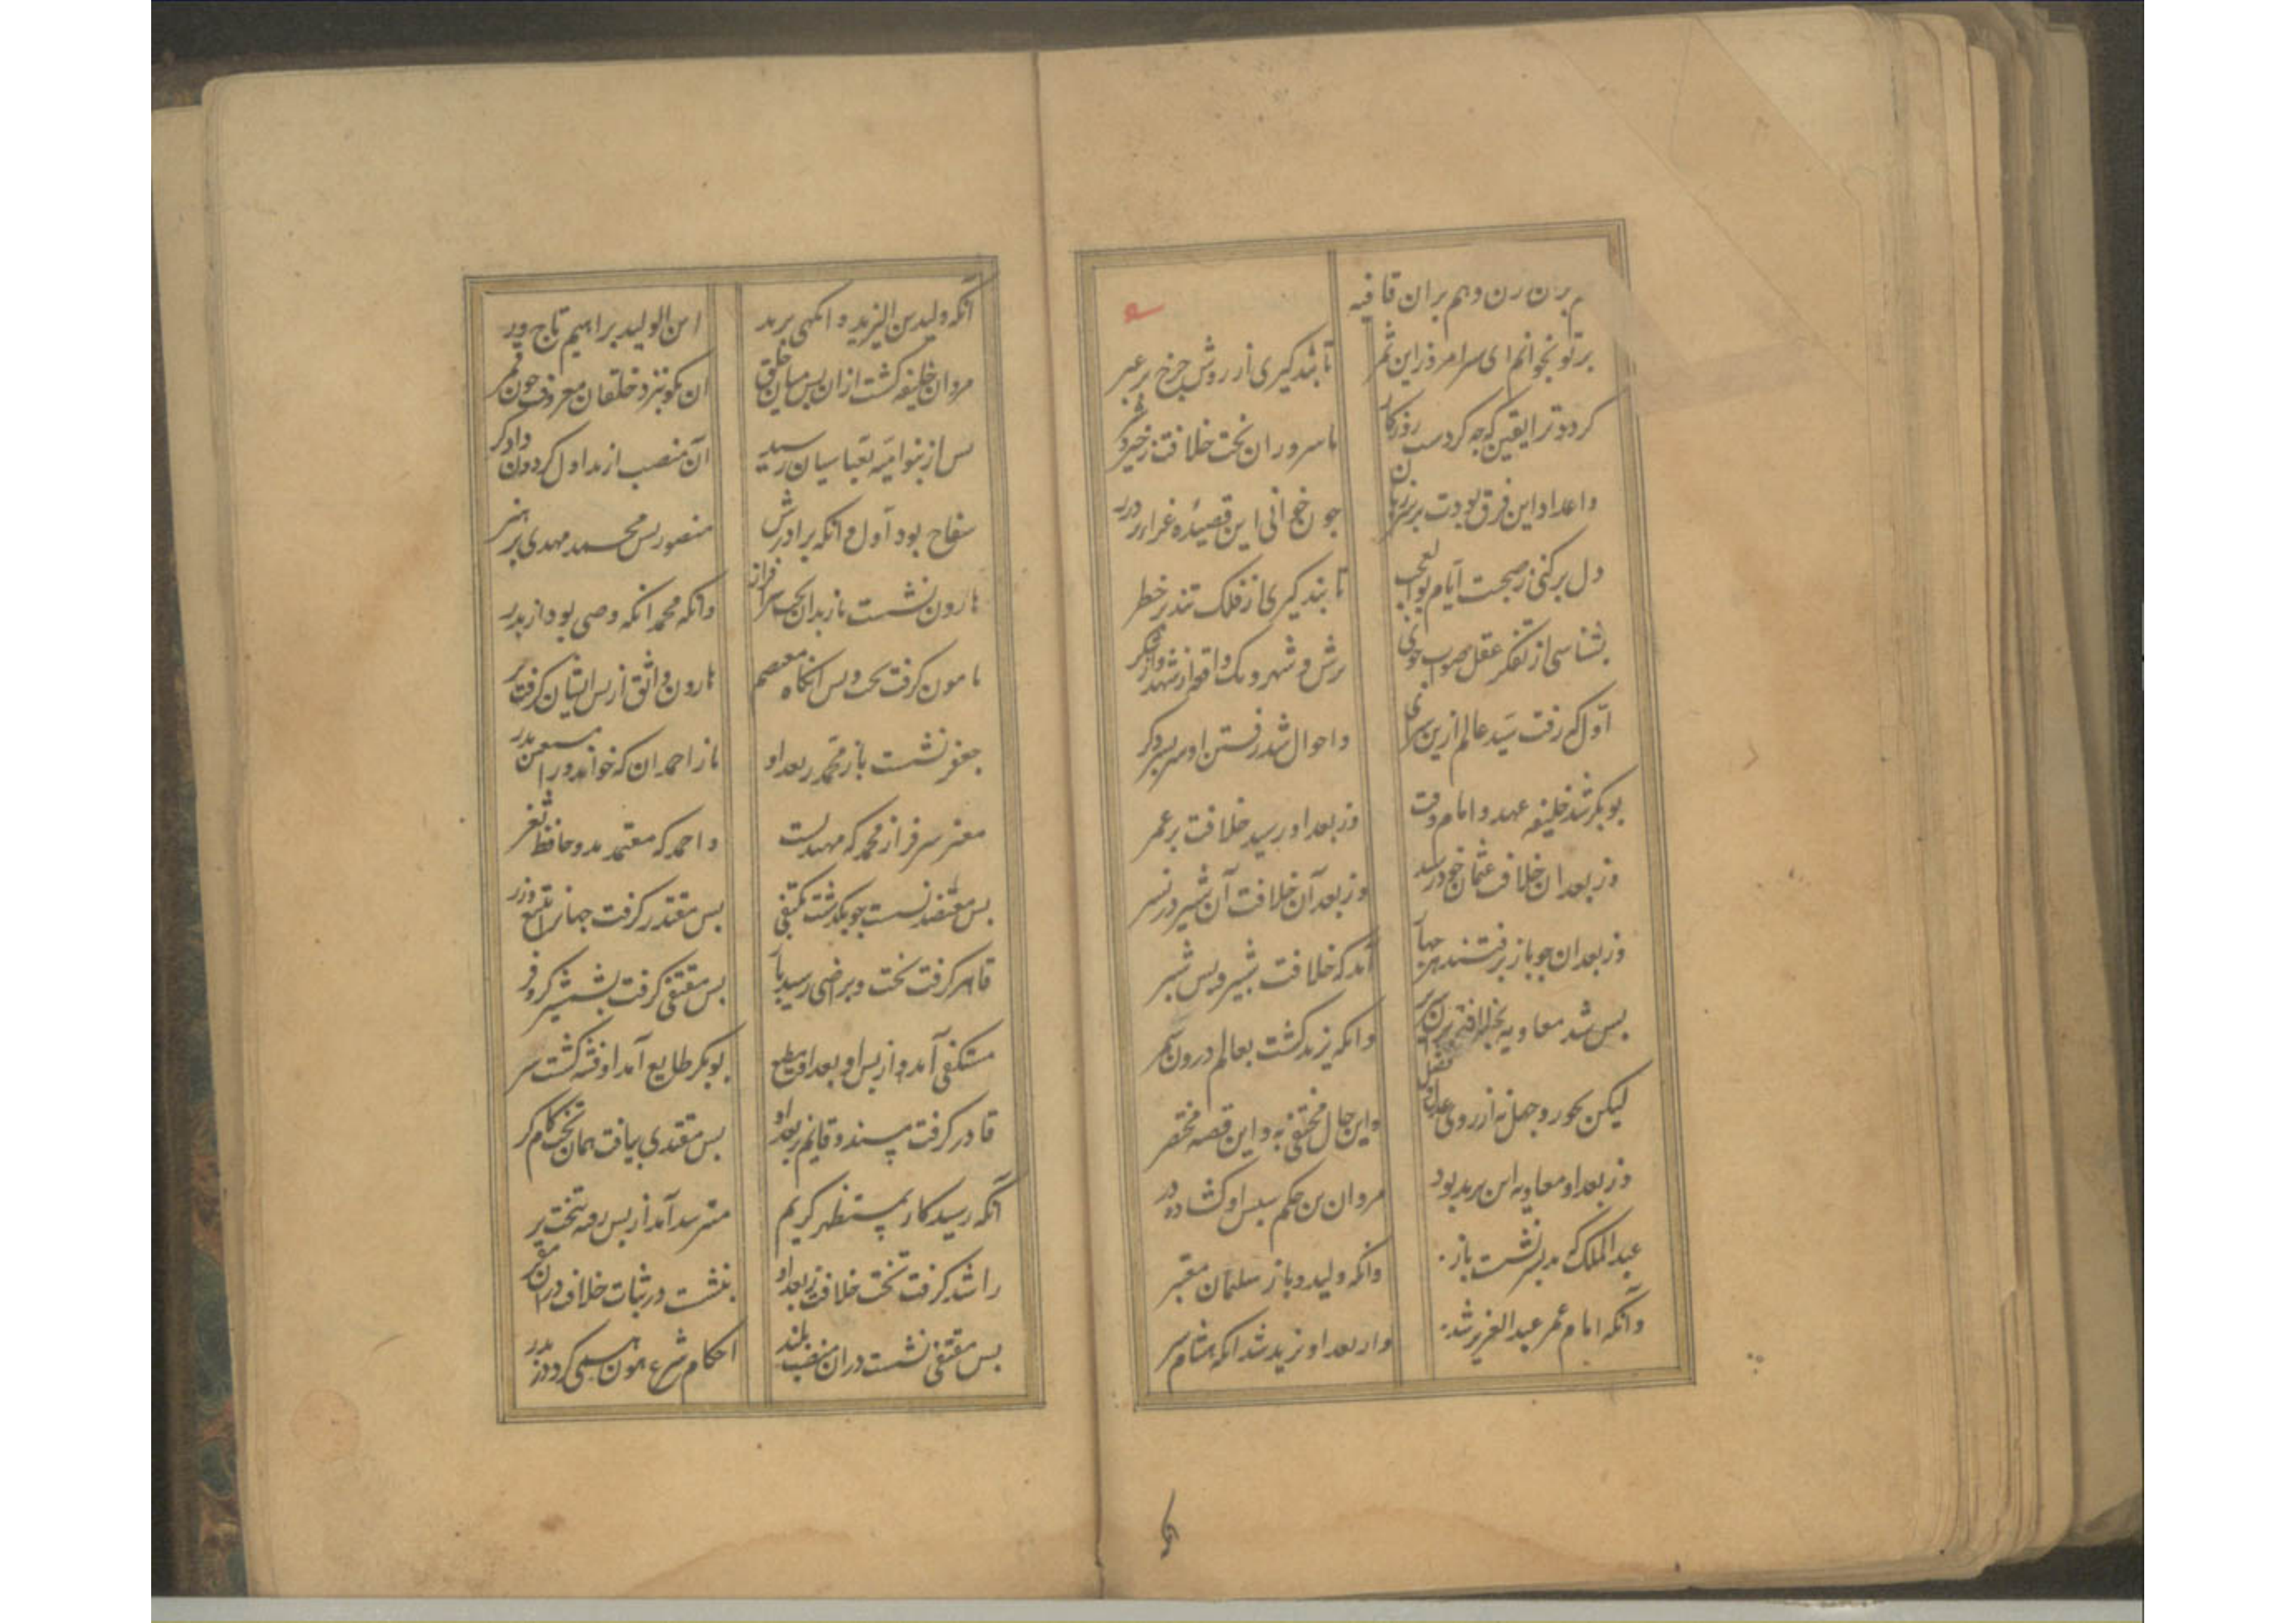 بران قافیه
بر تو بخوانم ای سرامروز این ثمر
تا پند گیری از روش چرخ بر عبر
کردد ترا یقین که چه کردست روزکار
با سروران تخت خلافت ز خیر و شر
واعداد این فرق بودت بر سر زبان
چون خوانی این قصیدهٔ غراء
دل بر کنی ز صحبت ایام بوالعجب
تا بند کیری از فلک تند بر خطر
بشناسی از تفکر عقل صواب جوی
اول که رفت سید عالم ازین سرای
واحوال شد ز رفتن او سر بسر دکر
بوبکر شد خلیفه عهد و امام وقت
وز بعد او رسید خلافت بر عمر
وز بعد ان خلافت عثمان
وز بعد آن خلافت آن شیر
وز بعد ان چو باز برفتند
آمد که خلافت شبیر و پس شبر
بس شد معاویه
وانکه یزید کشت بعالم درون سمر
لیکن بجور و جهل نه از روی عدل و فضل
واین حال مختفی به و این قصه مختصر
وز بعد او معاویه ابن یزید بود
مروان بن حکم سپس او کشاده در
عبدالملک نشست باز
وانکه ولید و باز سلیمان معتبر
وانکه امام عمر عبدالعزیز شد
وز بعد او یزید شد انکه هشام سر
آنکه ولید بن الیزید و انکهی یزید
ابن الولید براهیم تاج ور
مروان خلیفه کشت ازان پس میان خلق
ان کو بنزد خلقان معروف چون قمر
پس از بنوامیه بعباسیان رسید
آن منصب از مداول کردون دادکر
سفاح بود اول و انکه برادرش
منصور پس محمد مهدی پر هنر
هارون نشست باز بدان تخت سرفراز
وانکه محمد انکه وصی بود از پدر
مامون کرفت تخت و پس انکاه معتصم
هارون واثق از پس ایشان کرفت بر
جعفر نشست باز محمد ز بعد او
باز احمد ان که خواندورا مستعین پدر
معتز سرفراز محمد که مهتدیست
واحمد که معتمد بد و حافظ ثغر
بس معتضد نشست چو بکذشت مکتفی
بس مقتدر کرفت جهانرا بتیغ وزر
قاهر کرفت تخت و براضی رسید باز
بس متقی کرفت بشمشیر کر و فر
مستکفی آمد و از پس او بعد او مطیع
بوبکر طایع آمد او فتنه کشت سر
قادر کرفت مسند و قایم ز بعد او
بس مقتدی بیافت همان تخت کام کر
آنکه رسید کار بمستظهر کریم
مسترشد آمد از پس بتخت بر
راشد کرفت تخت خلافت ز بعد او
بنشست در ثبات خلافت دران مقر
بس مقتفی نشست دران منصب بلند
احکام شرع همون